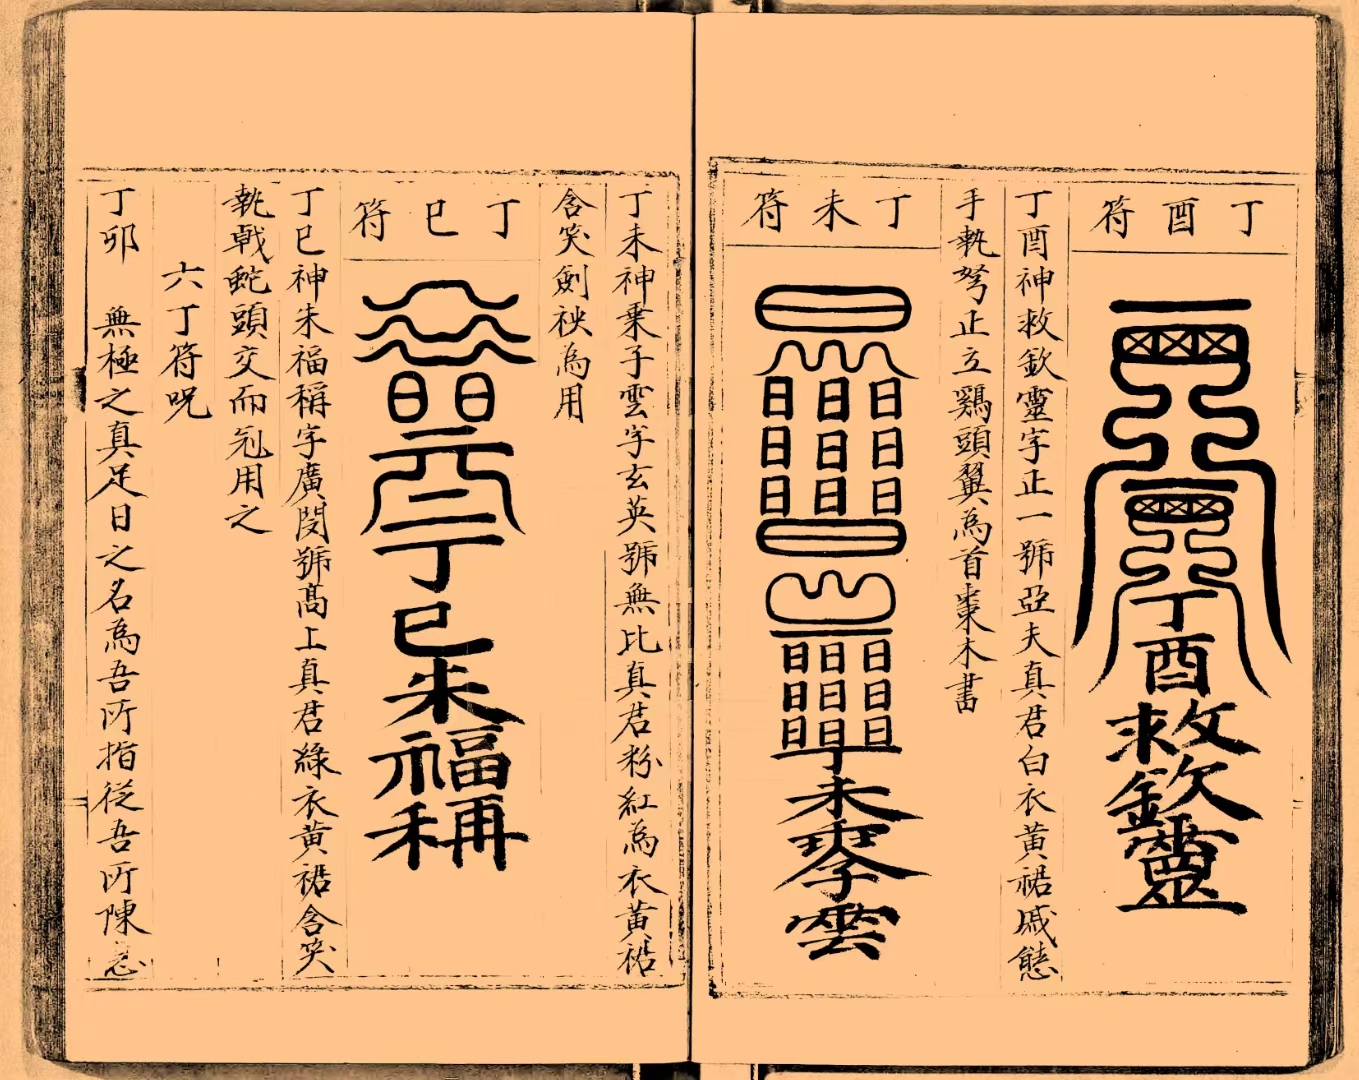 丁酉符
丁酉救欽靈
丁酉神救欽靈字正一號亞夫真君白衣黃裙戚態
手執弩止立鷄頭翼為首棗木書
丁未符
丁未
雲
丁未神乗子雲字玄英號無比真君粉紅為衣黃裙
含笑劍袂為用
丁巳符
丁巳朱福稱
丁巳神朱福稱字廣閔號髙上真君綠衣黃裙含笑
執戟蛇頭交而刱用之
六丁符呪
丁卯 無極之真足日之名為吾所指從吾所陳